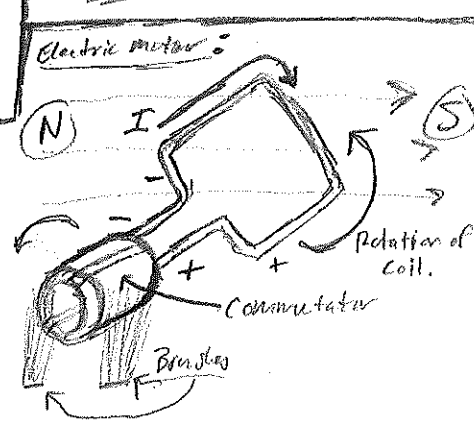 Electric motor:
N
I
S
-
-
Rotation of
coil.
+
+
Commutator
Brushes